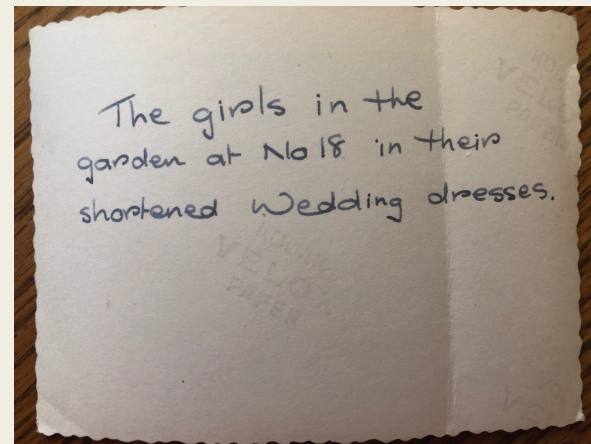 The girls in the
garden at No 18 in their
shortened Wedding dresses.
VELOX
PAPER
VELOX
PAPER